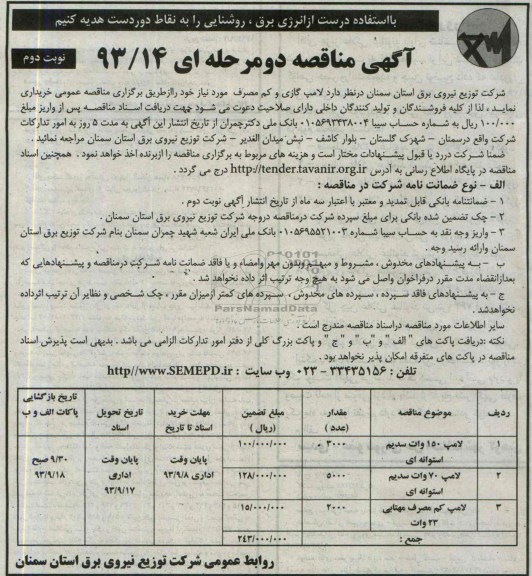 بااستفاده درست ازانرژی برق ، روشنایی را به نقاط دوردست هدیه کنیم
آگهی مناقصه دومرحله ای ۹۳/۱۴
نوبت دوم
شرکت توزیع نیروی برق استان سمنان درنظر دارد لامپ گازی و کم مصرف مورد نیاز خود راازطریق برگزاری مناقصه عمومی خریداری
نمایـد ، لذا از کلیه فروشـندگان و تولید کنندگان داخلی دارای صلاحیت دعوت می شـود جهت دریافت اسـناد مناقصـه پس از واریز مبلغ
۱۰۰/۰۰۰ ریال به شـماره حساب سیبا ۰۱۰۵۶۹۲۴۳۸۰۰۴ بانک ملی دکترچمران از تاریخ انتشار این آگهی به مدت ۵ روز به امور تدارکات
شرکت واقع درسمنان – شهرک گلستان – بلوار کاشف – نبش میدان الغدیر – شرکت توزیع نیروی برق استان سمنان مراجعه نمائید .
ضمناً شـرکت دررد یا قبول پیشـنهادات مختار است و هزینه های مربوط به برگزاری مناقصه را ازبرنده اخذ خواهد نمود . همچنین اسناد
مناقصه در پایگاه اطلاع رسانی به آدرس http://tender.tavanir.org.ir درج می گردد .
الف – نوع ضمانت نامه شرکت در مناقصه :
۱ – ضمانتنامه بانکی قابل تمدید و معتبر با اعتبار سه ماه از تاریخ انتشار آگهی نوبت دوم .
۲ – چک تضمین شده بانکی برای مبلغ سپرده شرکت درمناقصه دروجه شرکت توزیع نیروی برق استان سمنان .
۳ – واریز وجه نقد به حساب سیبا شماره ۰۱۰۵۶۹۵۵۲۱۰۰۳ بانک ملی ایران شعبه شهید چمران سمنان بنام شرکت توزیع برق استان
سمنان وارائه رسید وجه .
ب – بـه پیشـنهادهای مخدوش ، مشـروط و مبهـم وبدون مهر وامضاء و یا فاقد ضمانت نامه شـرکت درمناقصه و پیشـنهادهایی که
بعدازانقضاء مدت مقرر درفراخوان واصل می شود به هیچ وجه ترتیب اثر داده نخواهد شد .
ج – به پیشنهادهای فاقد سـپرده ، سـپرده های مخدوش ، سـپرده های کمتر ازمیزان مقرر ، چک شـخصی و نظایر آن ترتیب اثرداده
نخواهدشد .
سایر اطلاعات مورد مناقصه دراسناد مناقصه مندرج است .
نکته :دریافت پاکت های " الف " و "ب " و " ج " و پاکت بزرگ کلی از دفتر امور تدارکات الزامی می باشد . بدیهی است پذیرش اسناد
مناقصه در پاکت های متفرقه امکان پذیر نخواهد بود .
تلفن : ۳۳۴۳۵۱۵۶ – ۰۲۳ وب سایت : http//www.SEMEPD.ir
ParsNamadData
ردیف موضوع مناقصه مقدار (عدد ) مبلغ تضمین (ریال ) مهلت خرید اسناد تا تاریخ تاریخ تحویل اسناد تاریخ بازگشایی پاکات الف و ب
۱ لامپ ۱۵۰ وات سدیم استوانه ای ۳۰۰۰ ۱۰۰/۰۰۰/۰۰۰ پایان وقت اداری ۹۳/۹/۸ پایان وقت اداری ۹۳/۹/۱۷ ۹/۳۰ صبح ۹۳/۹/۱۸
۲ لامپ ۷۰ وات سدیم استوانه ای ۵۰۰۰ ۱۲۸/۰۰۰/۰۰۰
۳ لامپ کم مصرف مهتابی ۲۳ وات ۲۰۰۰ ۱۵/۰۰۰/۰۰۰
جمع : ۲۴۳/۰۰۰/۰۰۰
روابط عمومی شرکت توزیع نیروی برق استان سمنان